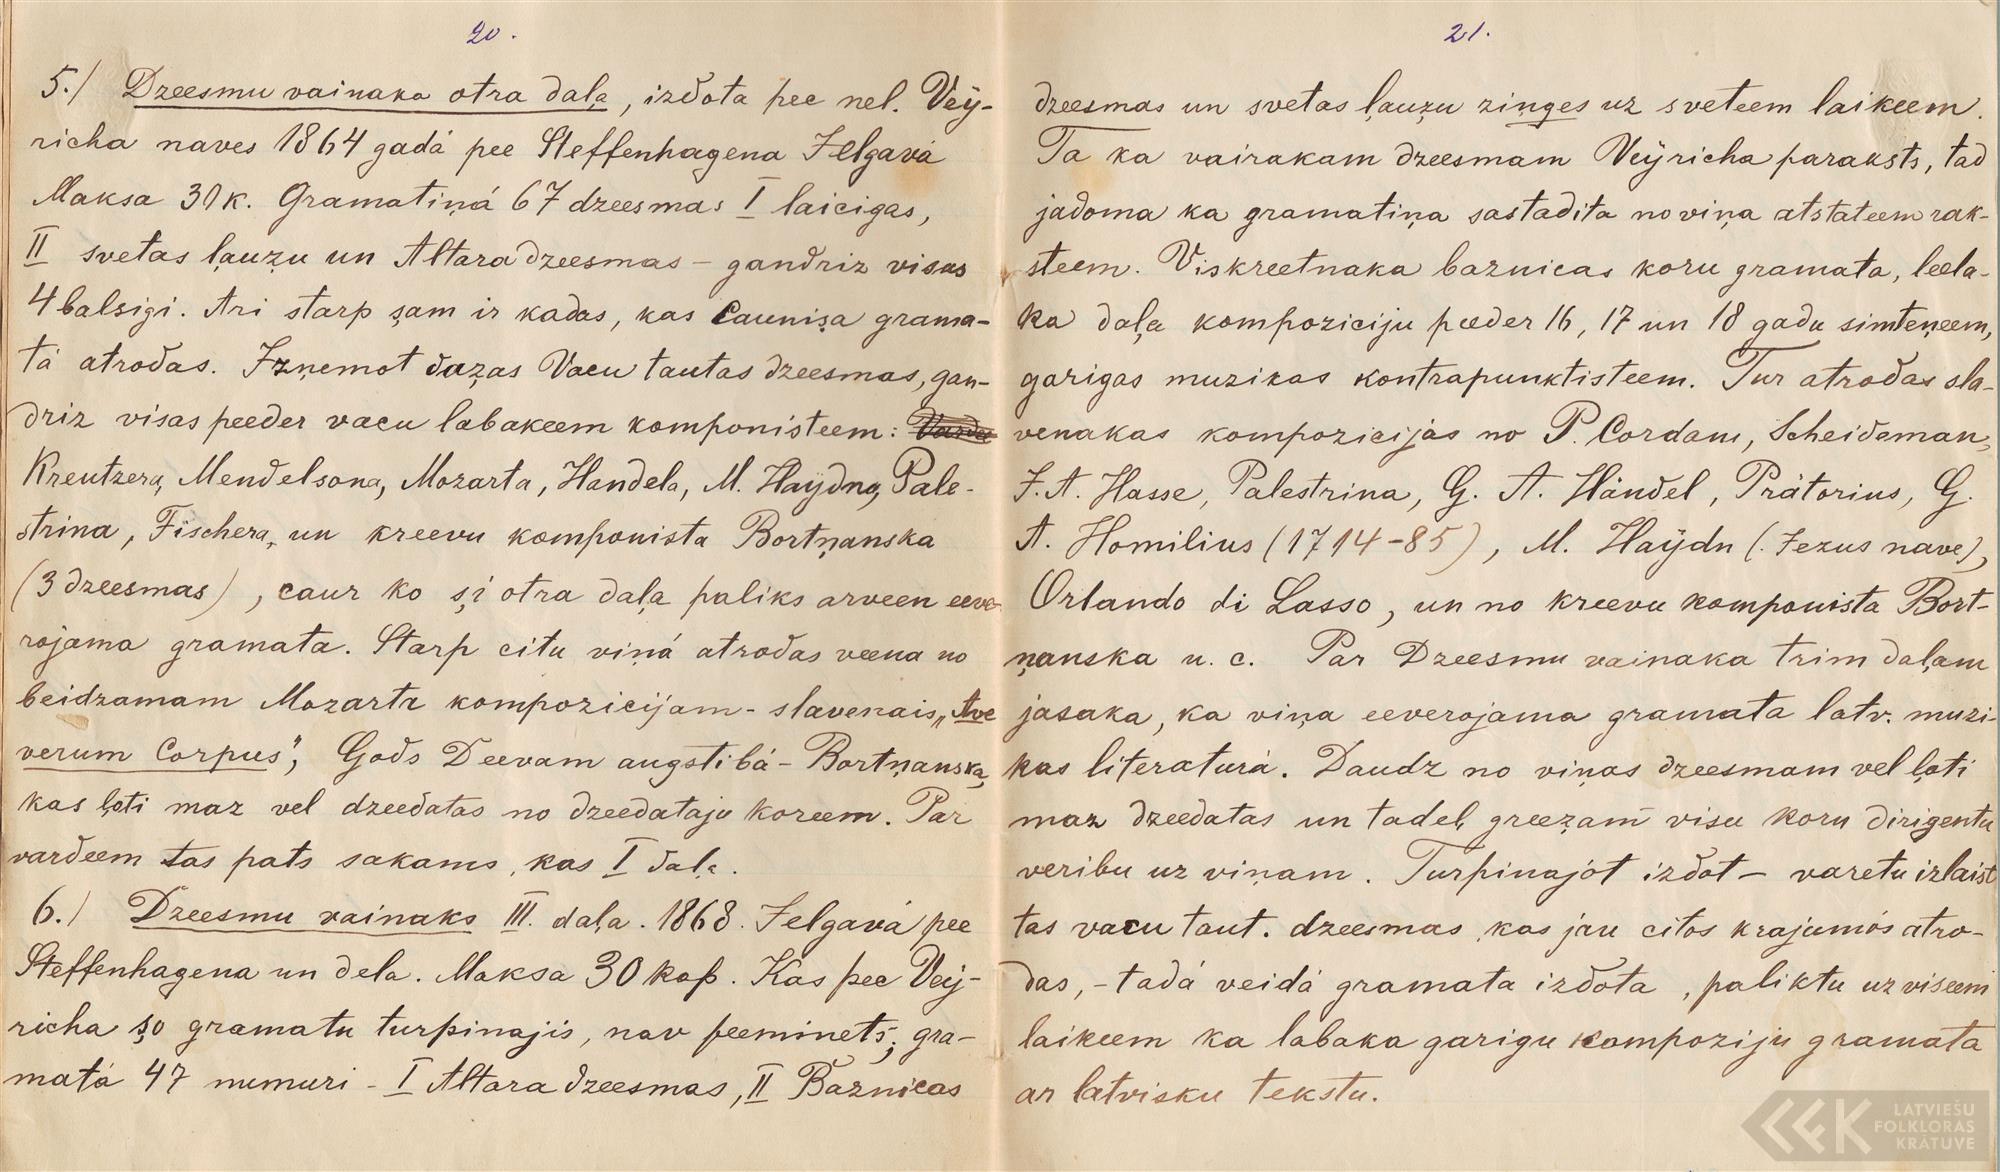 20.
5./ Dzeesmu vainaka otra daļa, izdota pee nel. Veÿ-
richa naves 1864 gadá pee Steffenhagena Jelgavá
Maksa 30 k. Gramatiņá 67 dzeesmas I laicigas,
II svetas ļauzu un Altara dzeesmas – gandriz visas
4 balsigi. Ari starp şam ir kadas, kas Caunişa grama-
tá atrodas. Izņemot dazas Vacu tautas dzeesmas, gan-
driz visas peeder vacu labakeem komponisteem:
Kreutzera, Mendelsona, Mozarta, Handela, M. Haÿdna, Pale-
strina, Fischera, un kreevu komponista Bortņanska
(3 dzeesmas), caur ko şi otra daļa paliks arveen eeve-
rojama gramata. Starp citu viņá atrodas veena no
beidzamam Mozarta kompozicijam - slavenais „Ave
verum Corpus", Gods Deevam augstibá – Bortņanska,
kas ļoti maz vel dzeedatas no dzeedataju koreem. Par
vardeem tas pats sakams, kas I daļa.
6./ Dzeesmu vainaks III. daļa. 1868. Jelgavá pee
Steffenhagena un dela. Maksa 30 kap. Kas pec Veÿ-
richa şo gramatu turpinajis, nav peeminets; gra-
matá 47 numuri – I Altara dzeesmas, II Baznicas
21.
dzeesmas un svetas ļauzu ziņges uz sveteem laikeem.
Ta ka vairakam dzeesmam Veÿricha paraksts, tad
jadoma ka gramatiņa sastadita no viņa atstateem rak-
steem. Viskreetnaka baznicas koru gramata, leela-
ka daļa kompoziciju peeder 16, 17 un 18 gadu simteņeem,
garigas muzikas kontrapunktisteem. Tur atrodas sla-
venakas kompozicijas no P. Cordans, Scheideman,
J. A. Hasse, Palestrina, G. A. Händel, Prätorius, G.
A. Homilius (1714-85), M. Haÿdn (Jezus nave),
Orlando di Lasso, un no kreevu komponista Bort-
ņanska u. c. Par Dzeesmu vainaka trim daļam
jasaka, ka viņa eeverojama gramata latv. muzi-
kas literaturá. Daudz no viņas dzeesmam vel ļoti
maz dzeedatas un tadeļ greezam visu koru dirigentu
veribu uz viņam. Turpinajót izdot – varetu izlaist
tas vacu taut. dzeesmas, kas jau citos krajumós atro-
das, - tadá veidá gramata izdota, paliktu uz viseem
laikeem ka labaka garigu kompoziju gramata
ar latvisku tekstu.
LATVIEŠU
FOLKLORAS
KRĀTUVE